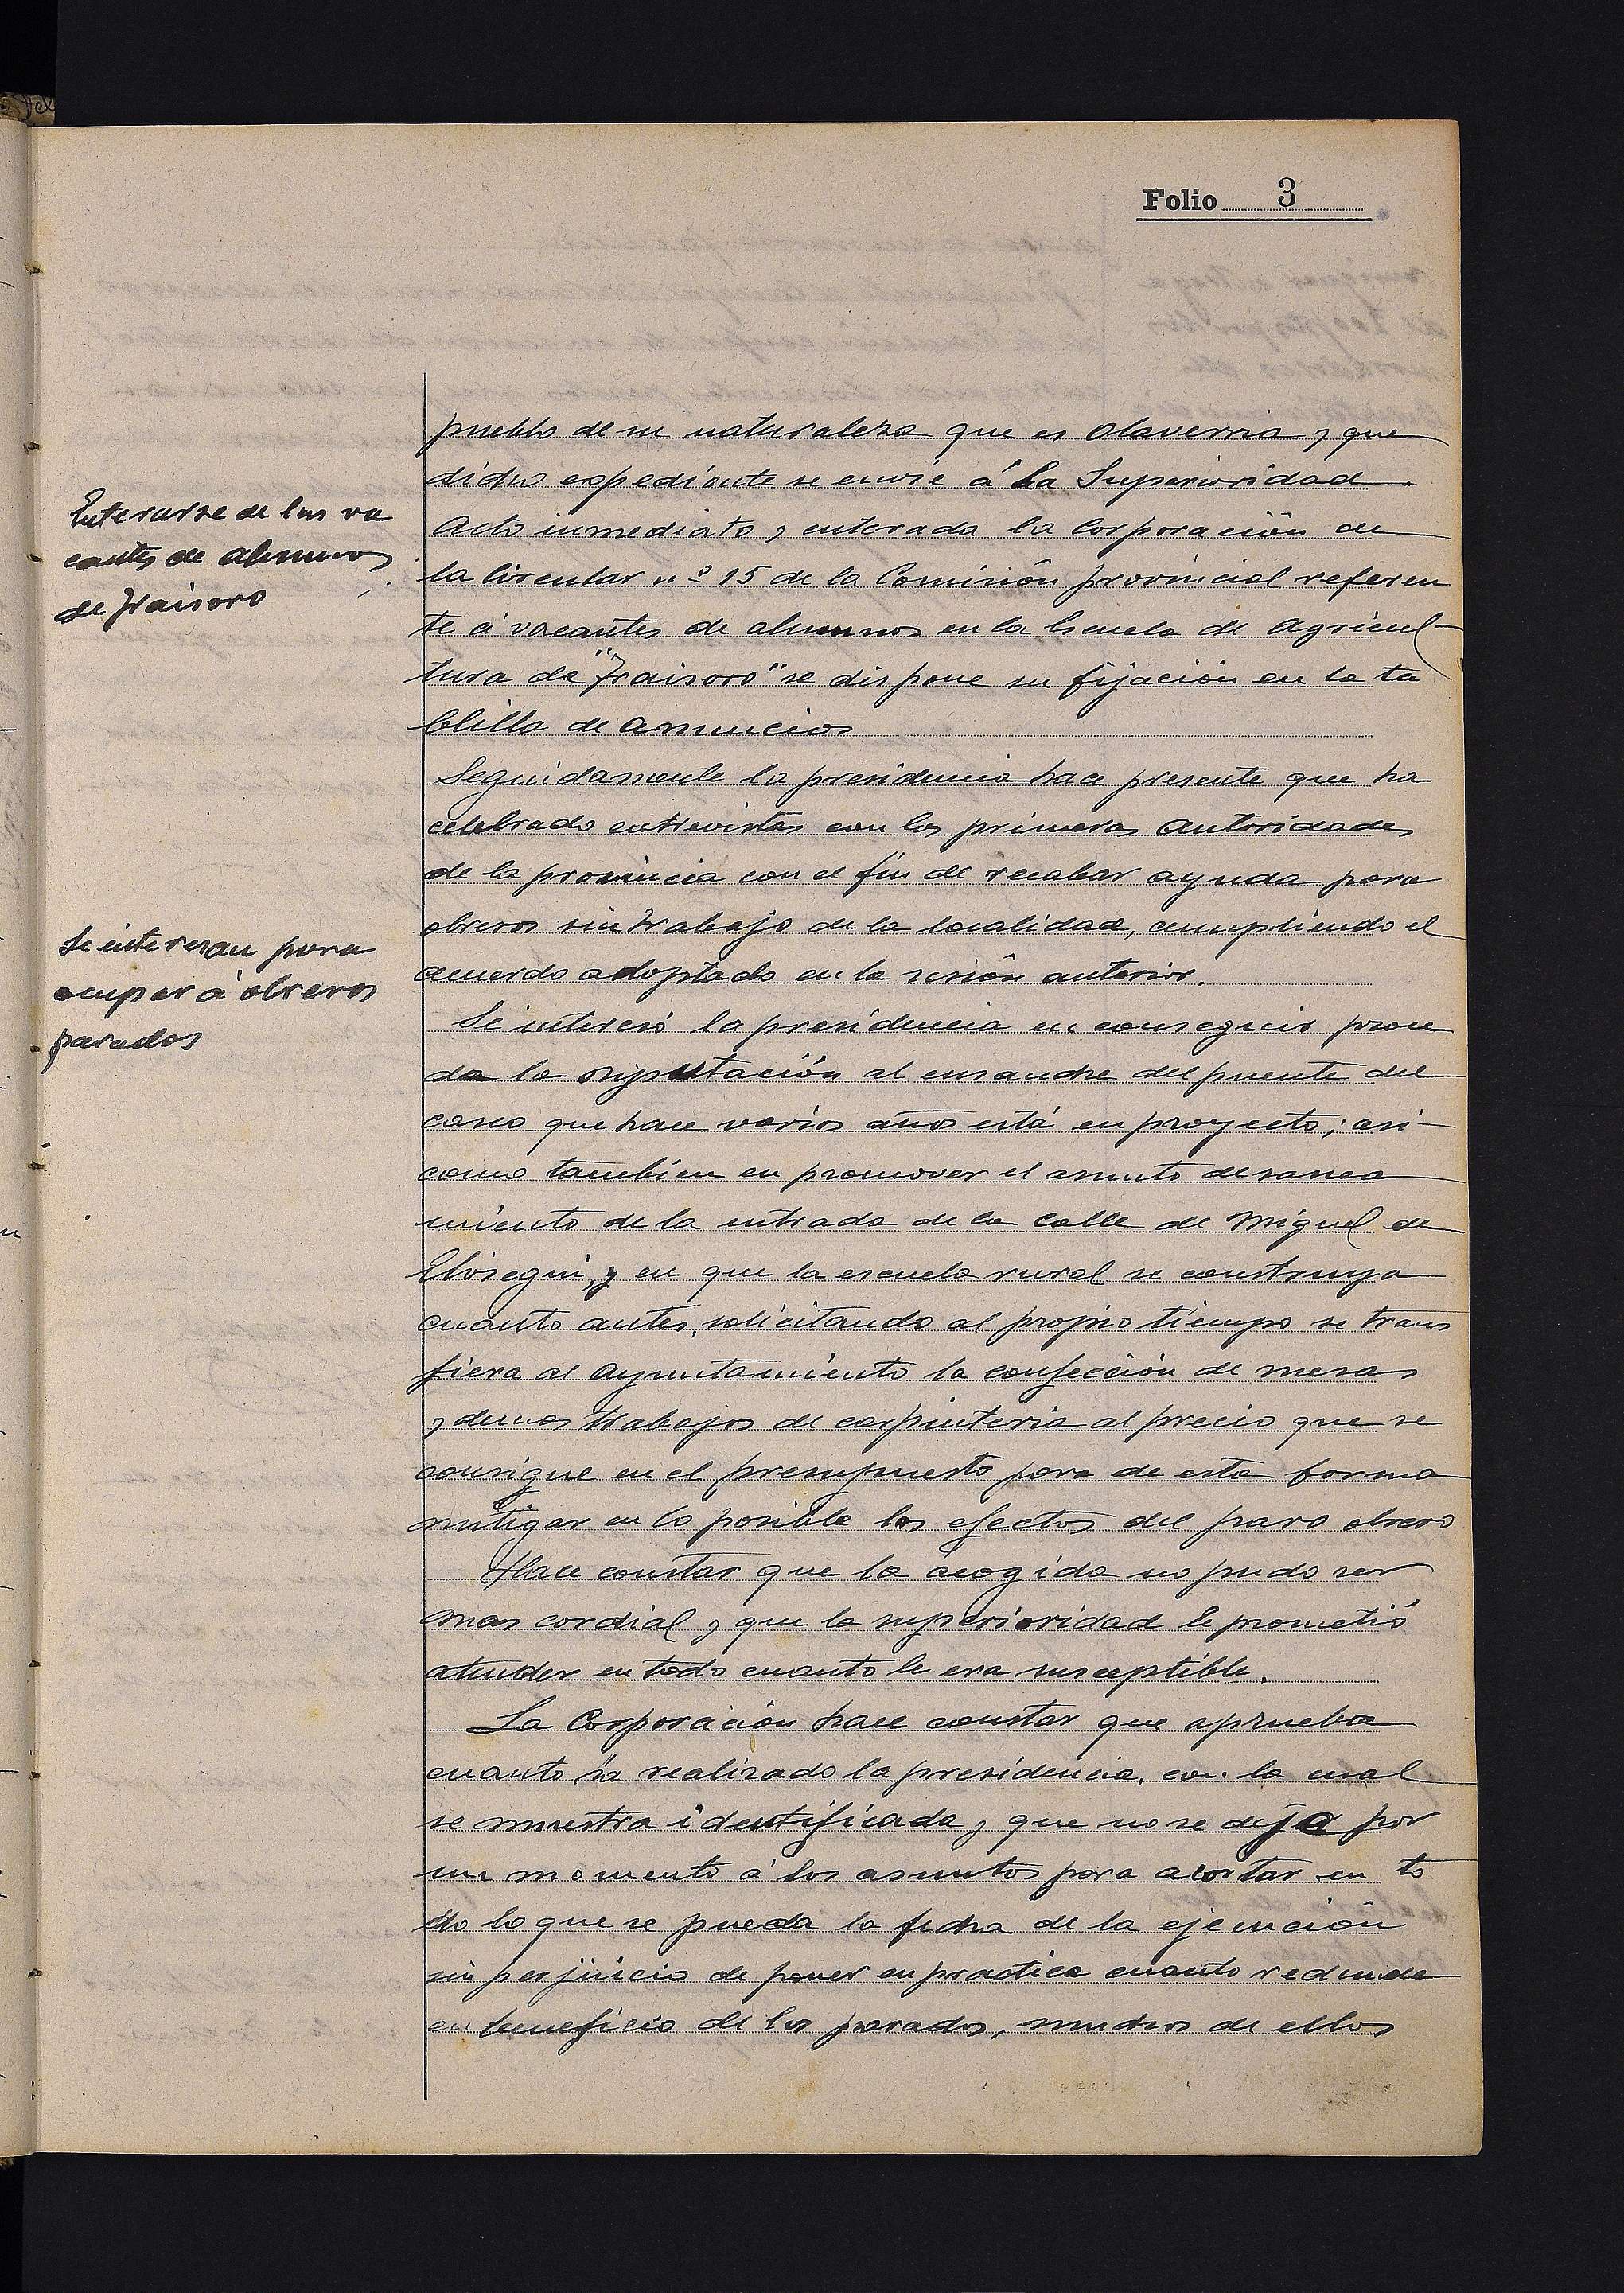 Folio 3
pueblo de su naturaleza que es Olaverria y que
dicho expediente se envie á la Superioridad.
Enterarse de las va
cantes de alumnos
de Fraisoro
Acto inmediato, enterada la Corporación de
la Circular nº 15 de la Comisión provincial referen
te á vacantes de alumnos en la Escuela de Agricul-
tura de "Fraisoro" se dispone su fijación en la ta
blilla de anuncios
Seguidamente la presidencia hace presente que ha
celebrado entrevistas con las primeras autoridades
de la provincia con el fin de recabar ayuda para
Se interesan para
ocupar á obreros
parados
obreros sin trabajo de la localidad, cumpliendo el
acuerdo adoptado en la sesión anterior.
Se interesó la presidencia en conseguir proce
da la Diputación al ensanche del puente del
casco que hace varios años está en proyecto; asi-
como tambien en promover el asunto de sanea
miento de la entrada de la Calle de Miguel de
Elosegui, y en que la escuela rural se construya
cuanto antes, solicitando al propio tiempo se trans
fiera al Ayuntamiento la confección de mesas
y demas trabajos de carpinteria al precio que se
consigne en el presupuesto para de esta forma
mitigar en lo posible los efectos del paro obrero
Hace constar que la acogida no pudo ser
mas cordial y que la superioridad le prometió
atender en todo cuanto le era susceptible.
La Corporación hace constar que aprueba
cuanto ha realizado la presidencia, con la cual
se muestra identificada, y que no se deja por
un momento á los asuntos para acortar en to
do lo que se pueda la fecha de la ejecución
sin perjuicio de poner en practica cuanto redunde
en beneficio de los parados, muchos de ellos